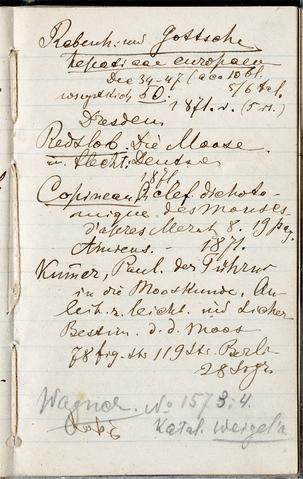 Rabenh. und Gottsche
hepaticae europaeae
Dec 39-47 (a 10 bl.
50. 5/6 tal.
1871. r. (5. rs.)
Dresden
Redslob. Die Moose
u. flecht. Deutsc
1871.
Copineau. Clef dichoto-
mique des Mousses
d'apres Merat 8. 19 pag.
Amiens. - 1871.
Kumer, Paul. der Führer
in die Mooskunde. An-
leit. z. leicht. und sicher
Bestim. d. d. Moos
78 fig. 119 Str. Berlin
28 Sgr.
Wagner. No 1573; 4.
Katal. Weigel'a